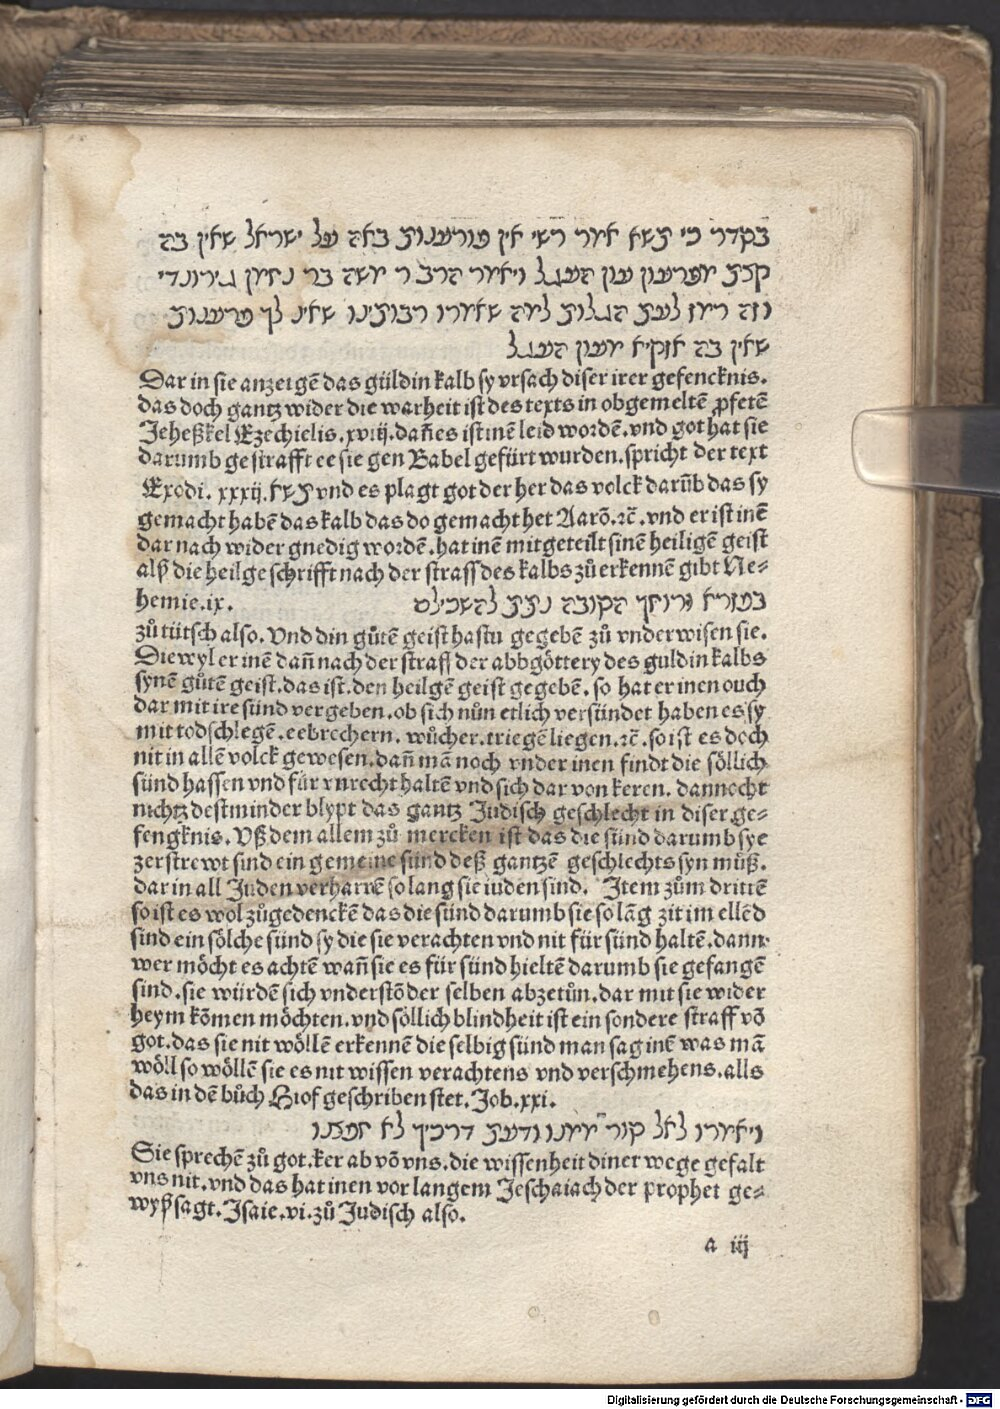 בסדר כי תשא אמר רשי אין פורענות באה על ישראל שאין בה
קצת מפרעון עון העגל ואמר הרב ר משה בר נחמן גירונדי
וזה רמז לעת הגלות למה שאמרו רבותינו שאינ לך פרענות
שאין בה אוקיא מעון העגל
Dar in sie anzeigē das güldin kalb sy vrsach diser irer gefencknis.
das doch gantz wider die warheit ist des texts in obgemeltē ꝓfetē
Jeheßkel Ezechielis.xviij.dañ es ist inē leid wordē.vnd got hat sie
darumb gestrafft ee sie gen Babel gefürt wurden.spricht der text
Exodi.xxxij.תשא vnd es plagt got der her das volck darūb das sy
gemacht habē das kalb das do gemacht het Aarō.ꝛc̄.vnd er ist inē
dar nach wider gnedig wordē.hat inē mitgeteilt sinē heiligē geist
alß die heilge schrifft nach der straff des kalbs zů erkennē gibt Ne⸗
hemie.ix. בעזרא ורוחך הטובה נתת להשכילם
zů tütsch also.Vnd din gůtē geist hastu gegebē zů vnderwisen sie.
Die wyl er inē dañ nach der straff der abbgöttery des guldin kalbs
synē gůtē geist.das ist.den heilgē geist gegebē.so hat er inen ouch
dar mit ire sünd vergeben.ob sich nůn etlich versündet haben es sy
mit todschlegē.eebrechern.wůcher.triegē liegen.ꝛc̄.so ist es doch
nit in allē volck gewesen.dañ mā noch vnder inen findt die söllich
sünd hassen vnd für vnrecht haltē vnd sich dar von keren.dannocht
nichtz destminder blypt das gantz Jüdisch geschlecht in diser ge⸗
fengknis.Vß dem allem zů mercken ist das die sünd darumb sye
zerstrewt sind ein gemeine sünd deß gantzē geschlechts syn můß.
dar in all Juden verharrē so lang sie iuden sind. Item zům drittē
so ist es wol zůgedenckē das die sünd darumb sie so lāg zit im ellēd
sind ein sölche sünd sy die sie verachten vnd nit für sünd haltē.dann
wer möcht es achtē wañ sie es für sünd hieltē darumb sie gefangē
sind.sie würdē sich vnderstō der selben abzetůn.dar mit sie wider
heym kōmen möchten.vnd söllich blindheit ist ein sondere straff vō
got.das sie nit wöllē erkennē die selbig sünd man sag inē was mā
wöll so wöllē sie es nit wissen verachtens vnd verschmehens.alls
das in dē bůch Hiof geschriben stet.Job.xxi.
ויאמרו לאל סור ממנו ודעת דרכיך לא חפצנו
Sie sprechē zů got.ker ab vō vns.die wissenheit diner wege gefalt
vns nit.vnd das hat inen vor langem Jeschaiach der prophet ge⸗
wyßsagt.Isaie.vi.zů Jüdisch also.
a iij
Digitalisierung gefördert durch die Deutsche Forschungsgemeinschaft - DFG